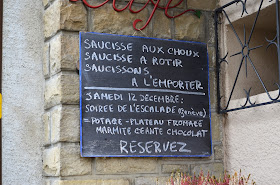 SAUCISSE AUX CHOUX
SAUCISSE A ROTIR
SAUCISSONS
A L'EMPORTER
SAMEDI 12 DECEMBRE:
SOIREE DE L'ESCALADE (Genève)
=POTAGE-PLATEAU FROMAGE
MARMITE GEANTE CHOCOLAT
RESERVEZ